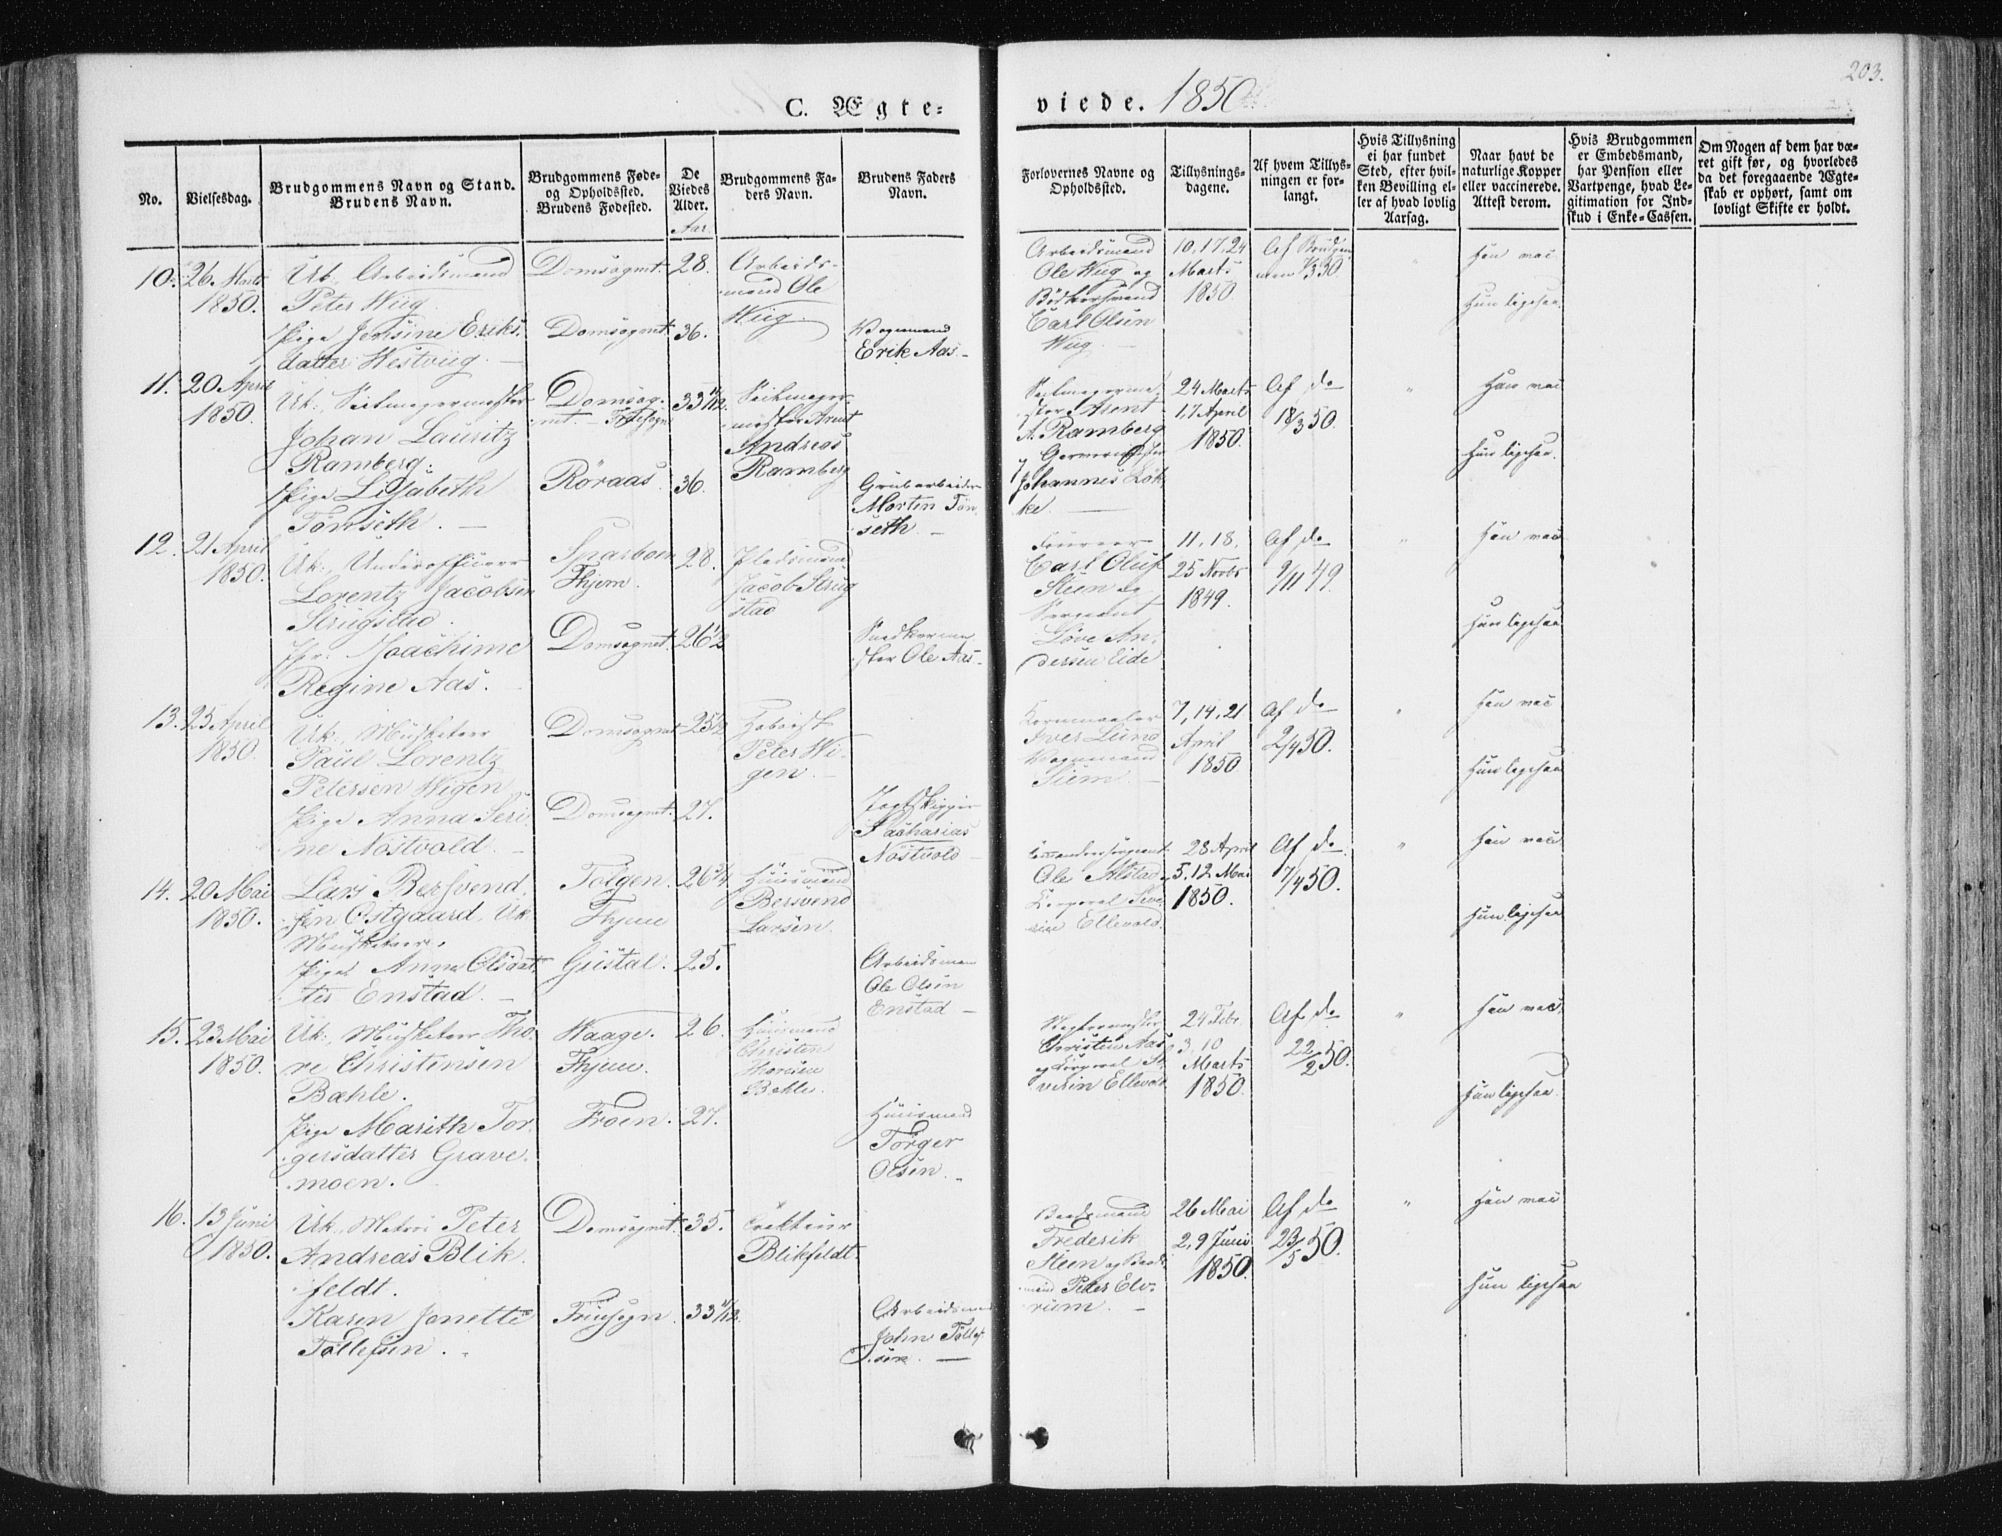 203.
C. Ægte-
viede. 1850
No.
Vielsesdag.
Brudgommens Navn og Stand.
Brudens Navn.
Brudgommens Føde-
og Opholdssted.
Brudens Fødested.
De
Viedes
Alder.
Aar.
Brudgommens Fa-
ders Navn.
Brudens Faders
Navn.
Forlovernes Navne og
Opholdssted.
Tillysnings-
dagene.
Af hvem Tillys-
ningen er for-
langt.
Hvis Tillysning
ei har fundet
Sted, efter hvil-
ken Bevilling el-
ler af hvad lovlig
Aarsag.
Naar havt de
naturlige Kopper
eller vaccinerede.
Attest derom.
Hvis Brudgommen
er Embedsmand,
har Pension eller
Vartpenge, hvad Le-
gitimation for Ind-
skud i Enke-Cassen.
Om Nogen af dem har væ-
ret gift før, og hvorledes
da det foregaaende Ægte-
skab er ophørt, samt om
lovligt Skifte er holdt.
10.
26 Marts
1850.
Uk. Arbeidsmand
Peter Wiig.
Pige Jensine Eriks-
datter Westviig.
Domsognt.
Domsognt.
28.
36.
Arbeids-
mand Ole
Wiig.
Vognmand
Erik Aas
Arbeidsmand
Ole Wiig og
Bødkersvend
Carl Olsen
Wiig.
10, 17, 24
Marts
1850.
Af Brudgom
men 7/3 50
Han vac
Hun ligesaa
11.
20 April
1850.
Uk.
Johan Lauritz
Ramberg.
Pige Lisabeth
Tönseth.
Domsog-
nt.
Röraas.
33 11/12.
36.
Arent
Andreas
Ramberg
Grubarbeider
Morten Tön
seth.
Arent
A. Ramberg
Johannes Lök-
ke.
24 Marts
17 April
1850.
Af do
18/3 50.
Han vac
Hun ligesaa.
12.
21 April
1850.
Uk. Underofficeer
Lorentz Jacobsen
Strugstad.
Joachime
Regine Aas.
Sparboen
Thjem.
Domsognt.
28.
26 1/2
Pladsmand
Jacob Strug
stad
Snedkerme
ster Ole Aas
Foureer
Carl Oluf
Steen og
Sergeant
Löve An-
dersen Eide
11, 18,
25 Novbr
1849.
Af do
9/11 49.
Han vac
Hun ligesaa
13.
25 April
1850.
Uk. Musketeer
Paul Lorentz
Petersen Wigen
Pige Anna Seri-
ne Nöstvold.
Domsognt
Domsognt.
25 1/2
27.
Peter Wi-
gen.
Jagtskipper
Zacharias
Nöstvold
Kornmaaler
Iver Lund
Vognmand
Siem.
7, 14, 21
April
1850
Af do
2/4 50.
Han vac
Hun ligesaa
14.
20 Mai
1850.
Lars Bersvend-
sen Ostgaard, Uk
Musketeer.
Pige Anne Olsdat-
ter Enstad.
Tolgen.
Thjem
Gustal.
26 3/4
25.
Huusmand
Bersvend
Larsen.
Arbeidsman
Ole Olsen
Enstad
Commandersergeant
Ole Alstad
Corporal Seve
rin Ellevold.
28 April
5, 12 Mai
1850.
Af do.
17/4 50.
Han vac
Hun ligesaa
15.
23 Mai
1850.
Uk. Musketeer Tho-
re Christensen
Bæhle.
Pige Marith Tor-
gersdatter Grave-
moen.
Waage.
Thjem.
Froen.
26.
27.
Huusmand
Christen
Thoresen
Bæhle.
Huusmand
Torger
Olsen.
Christen Aas
og Corporal Se-
verin Ellevold
24 Febr
3, 10
Marts
1850.
Af do
22/2 50.
Han vac.
Hun ligesaa
16.
13 Juni
1850.
Uk. Matros Peter
Andreas Blik-
feldt.
Karen Jonette
Tollefsen.
Domsognt.
Fruesogn.
35.
33 11/12.
Blikfeldt.
Arbeidsmand
John Tollef
sen.
Baadsmand
Frederik
Steen og Baads-
mand Peter Elv-
rum.
26 Mai
2, 9 Juni
1850.
Af do
23/5 50.
Han vac
Hun ligesaa